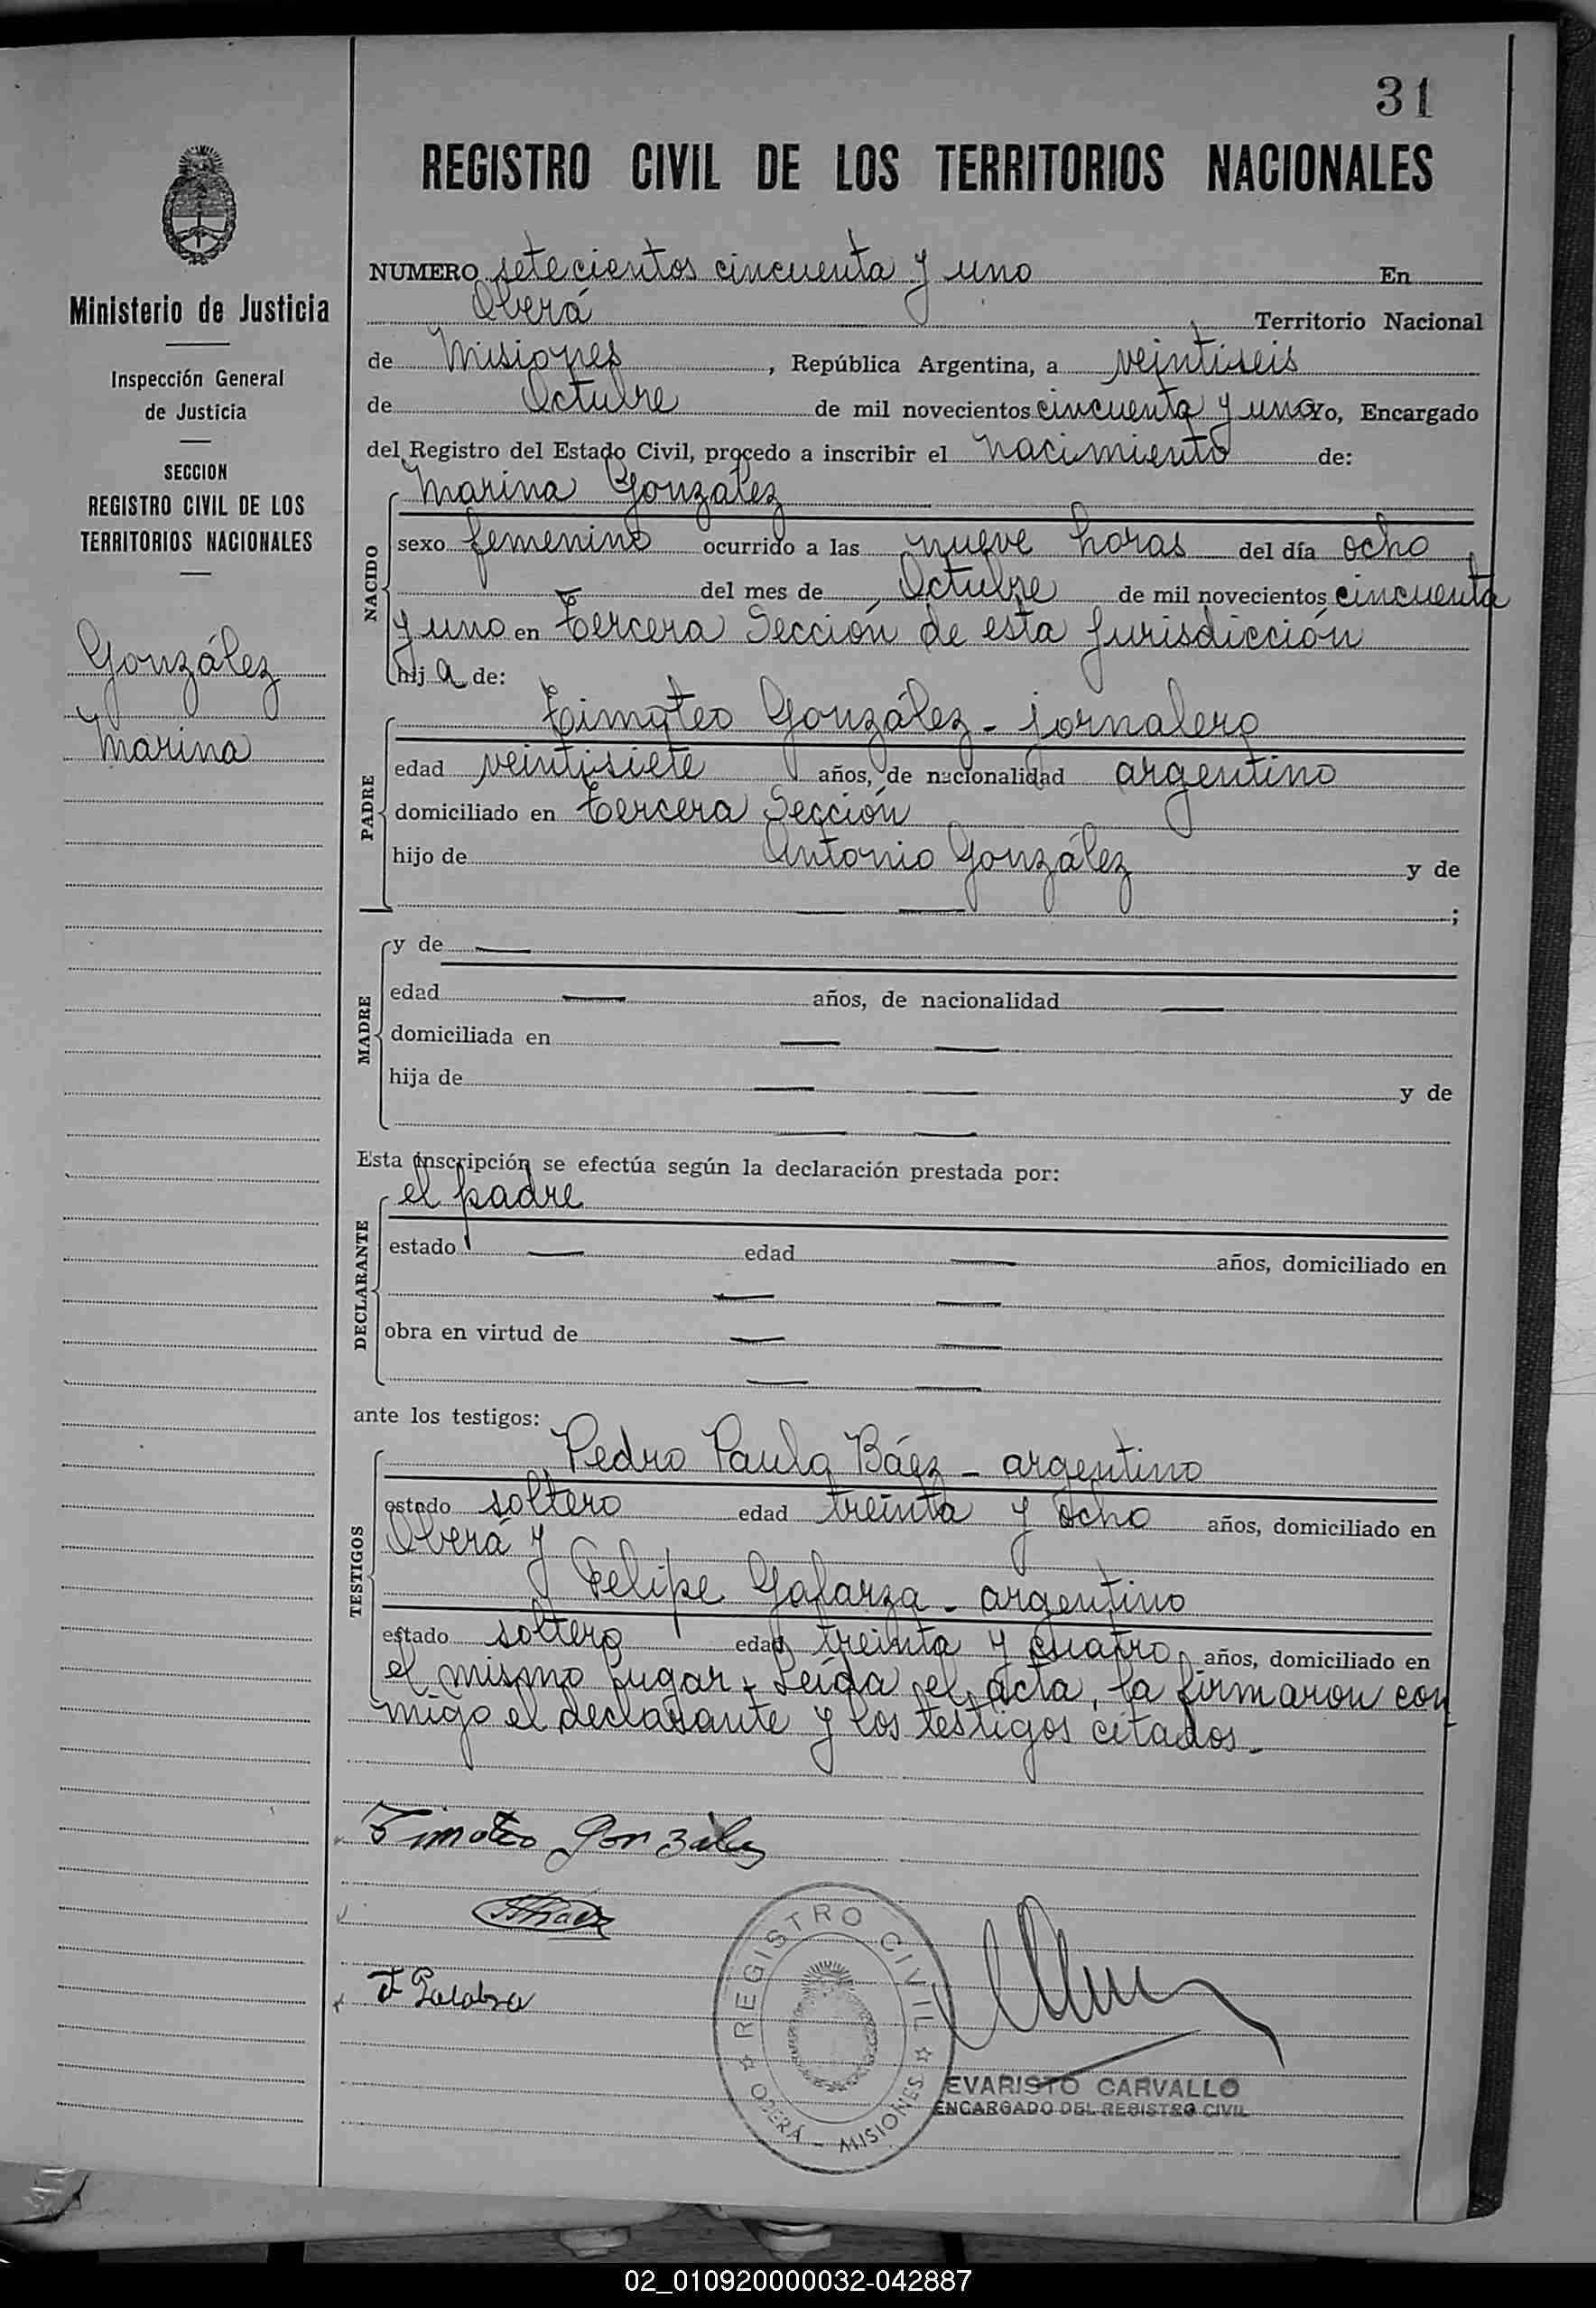 31
REGISTRO CIVIL DE LOS TERRITORIOS NACIONALES
Ministerio de Justicia
Inspección General
de Justicia
SECCION
REGISTRO CIVIL DE LOS
TERRITORIOS NACIONALES
González
Marina
NUMERO setecientos cincuenta y uno En
Oberá Territorio Nacional
de Misiones, República Argentina, a veintiseis
de Octubre de mil novecientos cincuenta y uno Yo, Encargado
del Registro del Estado Civil, procedo a inscribir el nacimiento de:
NACIDO
Marina González
sexo femenino ocurrido a las nueve horas del día ocho
del mes de Octubre de mil novecientos cincuenta
y uno en Tercera Sección de esta jurisdicción
hij a de:
PADRE
Timoteo González - jornalero
edad veintisiete años, de nacionalidad argentino
domiciliado en Tercera Sección
hijo de Antonio González y de
— — ;
MADRE
y de —
edad — años, de nacionalidad —
domiciliada en — —
hija de — — y de
— —
Esta inscripción se efectúa según la declaración prestada por:
DECLARANTE
el padre
estado — edad — años, domiciliado en
— —
obra en virtud de — —
— —
ante los testigos:
TESTIGOS
Pedro Paula Báez - argentino
estado soltero edad treinta y ocho años, domiciliado en
Oberá y
Felipe Galarza - argentino
estado soltero edad treinta y cuatro años, domiciliado en
el mismo lugar - Leída el acta, la firmaron con
migo el declarante y los testigos citados -
Timoteo Gonzalez
REGISTRO CIVIL
OBERÁ - MISIONES
EVARISTO CARVALLO
ENCARGADO DEL REGISTRO CIVIL
02_010920000032-042887